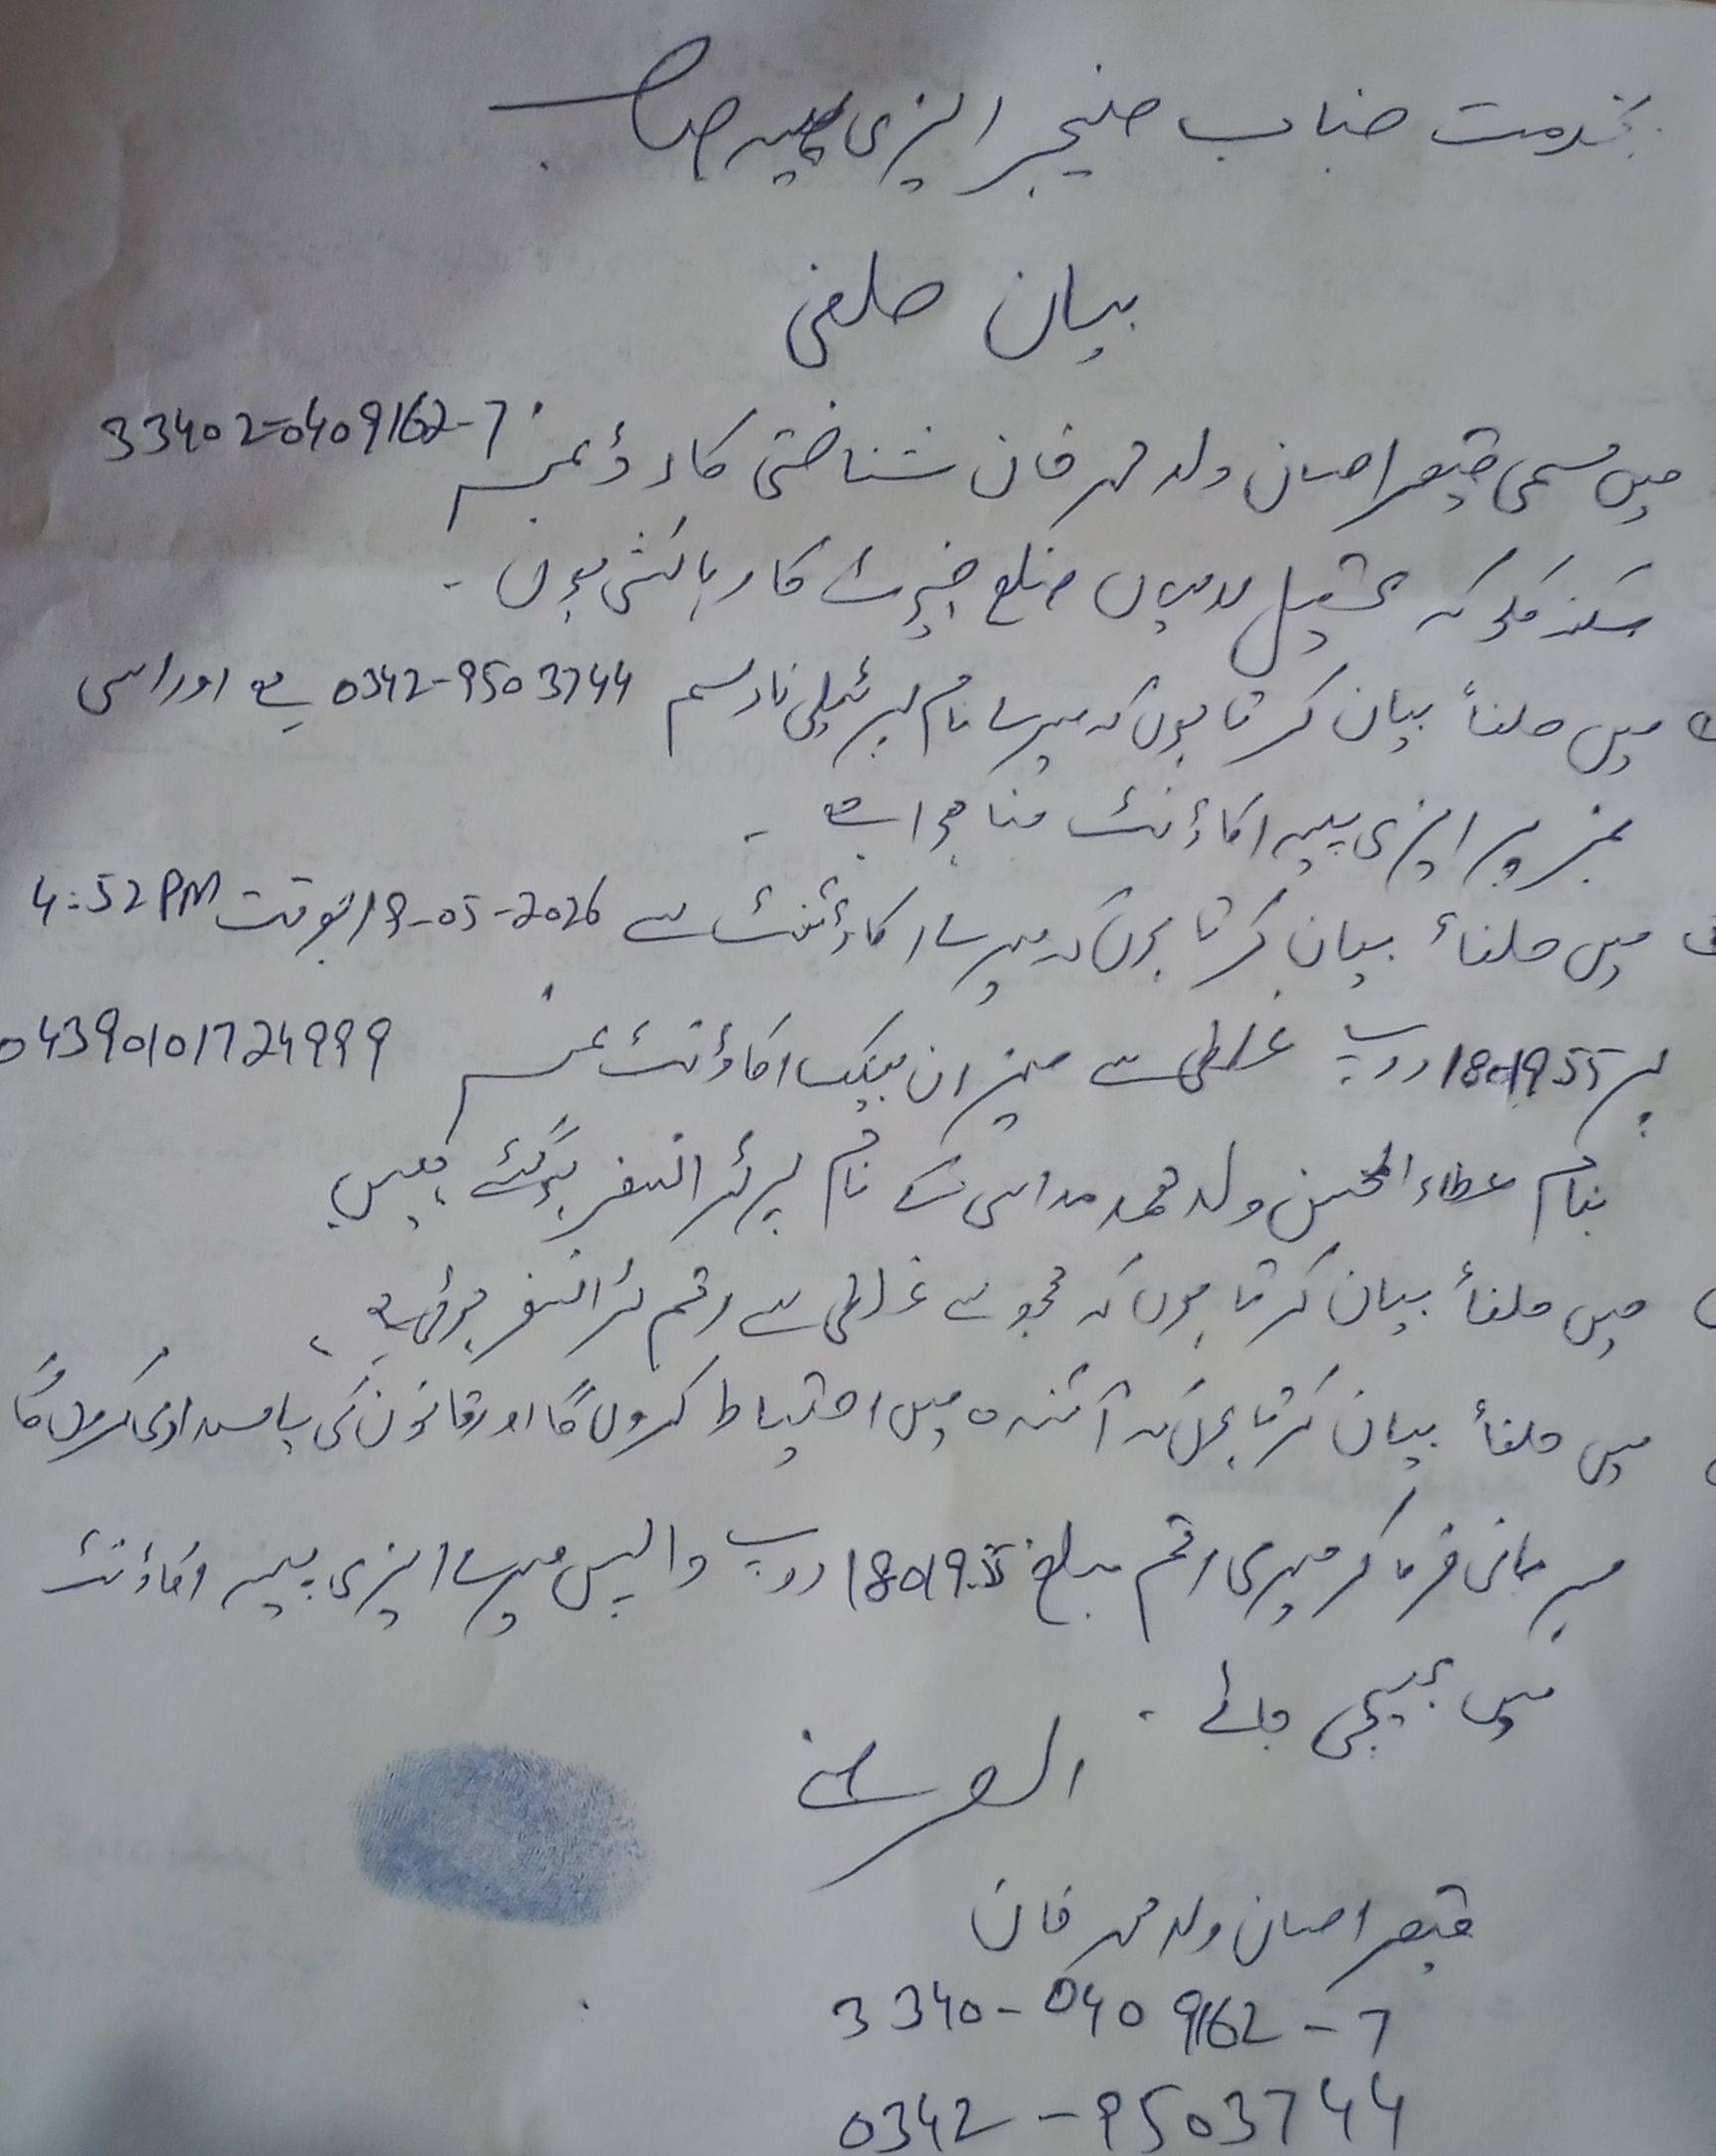 بخدمت جناب منیجر ایزی پیسہ صاحب
بیان حلفی
میں مسمی قیصر احسان ولد مہر خان شناختی کارڈ نمبر 33402-0409162-7
سکنہ تحصیل لالیاں ضلع چنیوٹ کا رہائشی ہوں ۔
میں حلفاً بیان کرتا ہوں کہ میرے نام پر ٹیلی نار سم 0342-9503744 ہے اور اسی
نمبر پر ایزی پیسہ اکاؤنٹ بنا ہوا ہے ۔
میں حلفاً بیان کرتا ہوں کہ میرے اکاؤنٹ سے 19-05-2026 بوقت 4:52 PM
پر روپے غلطی سے میزان بینک اکاؤنٹ نمبر 04390101724999
بنام عطاء المحسن ولد محمد کے نام پر ٹرانسفر ہو گئے ہیں
میں حلفاً بیان کرتا ہوں کہ مجھ سے غلطی سے رقم ٹرانسفر ہوئی ہے ،
میں حلفاً بیان کرتا ہوں کہ آئندہ میں احتیاط کروں گا اور قانون کی پاسداری کروں گا
مہربانی فرما کر میری رقم مبلغ روپے واپس میرے ایزی پیسہ اکاؤنٹ
میں بھیجی جائے ۔
العارض
قیصر احسان ولد مہر خان
3340-0409162-7
0342-9503744